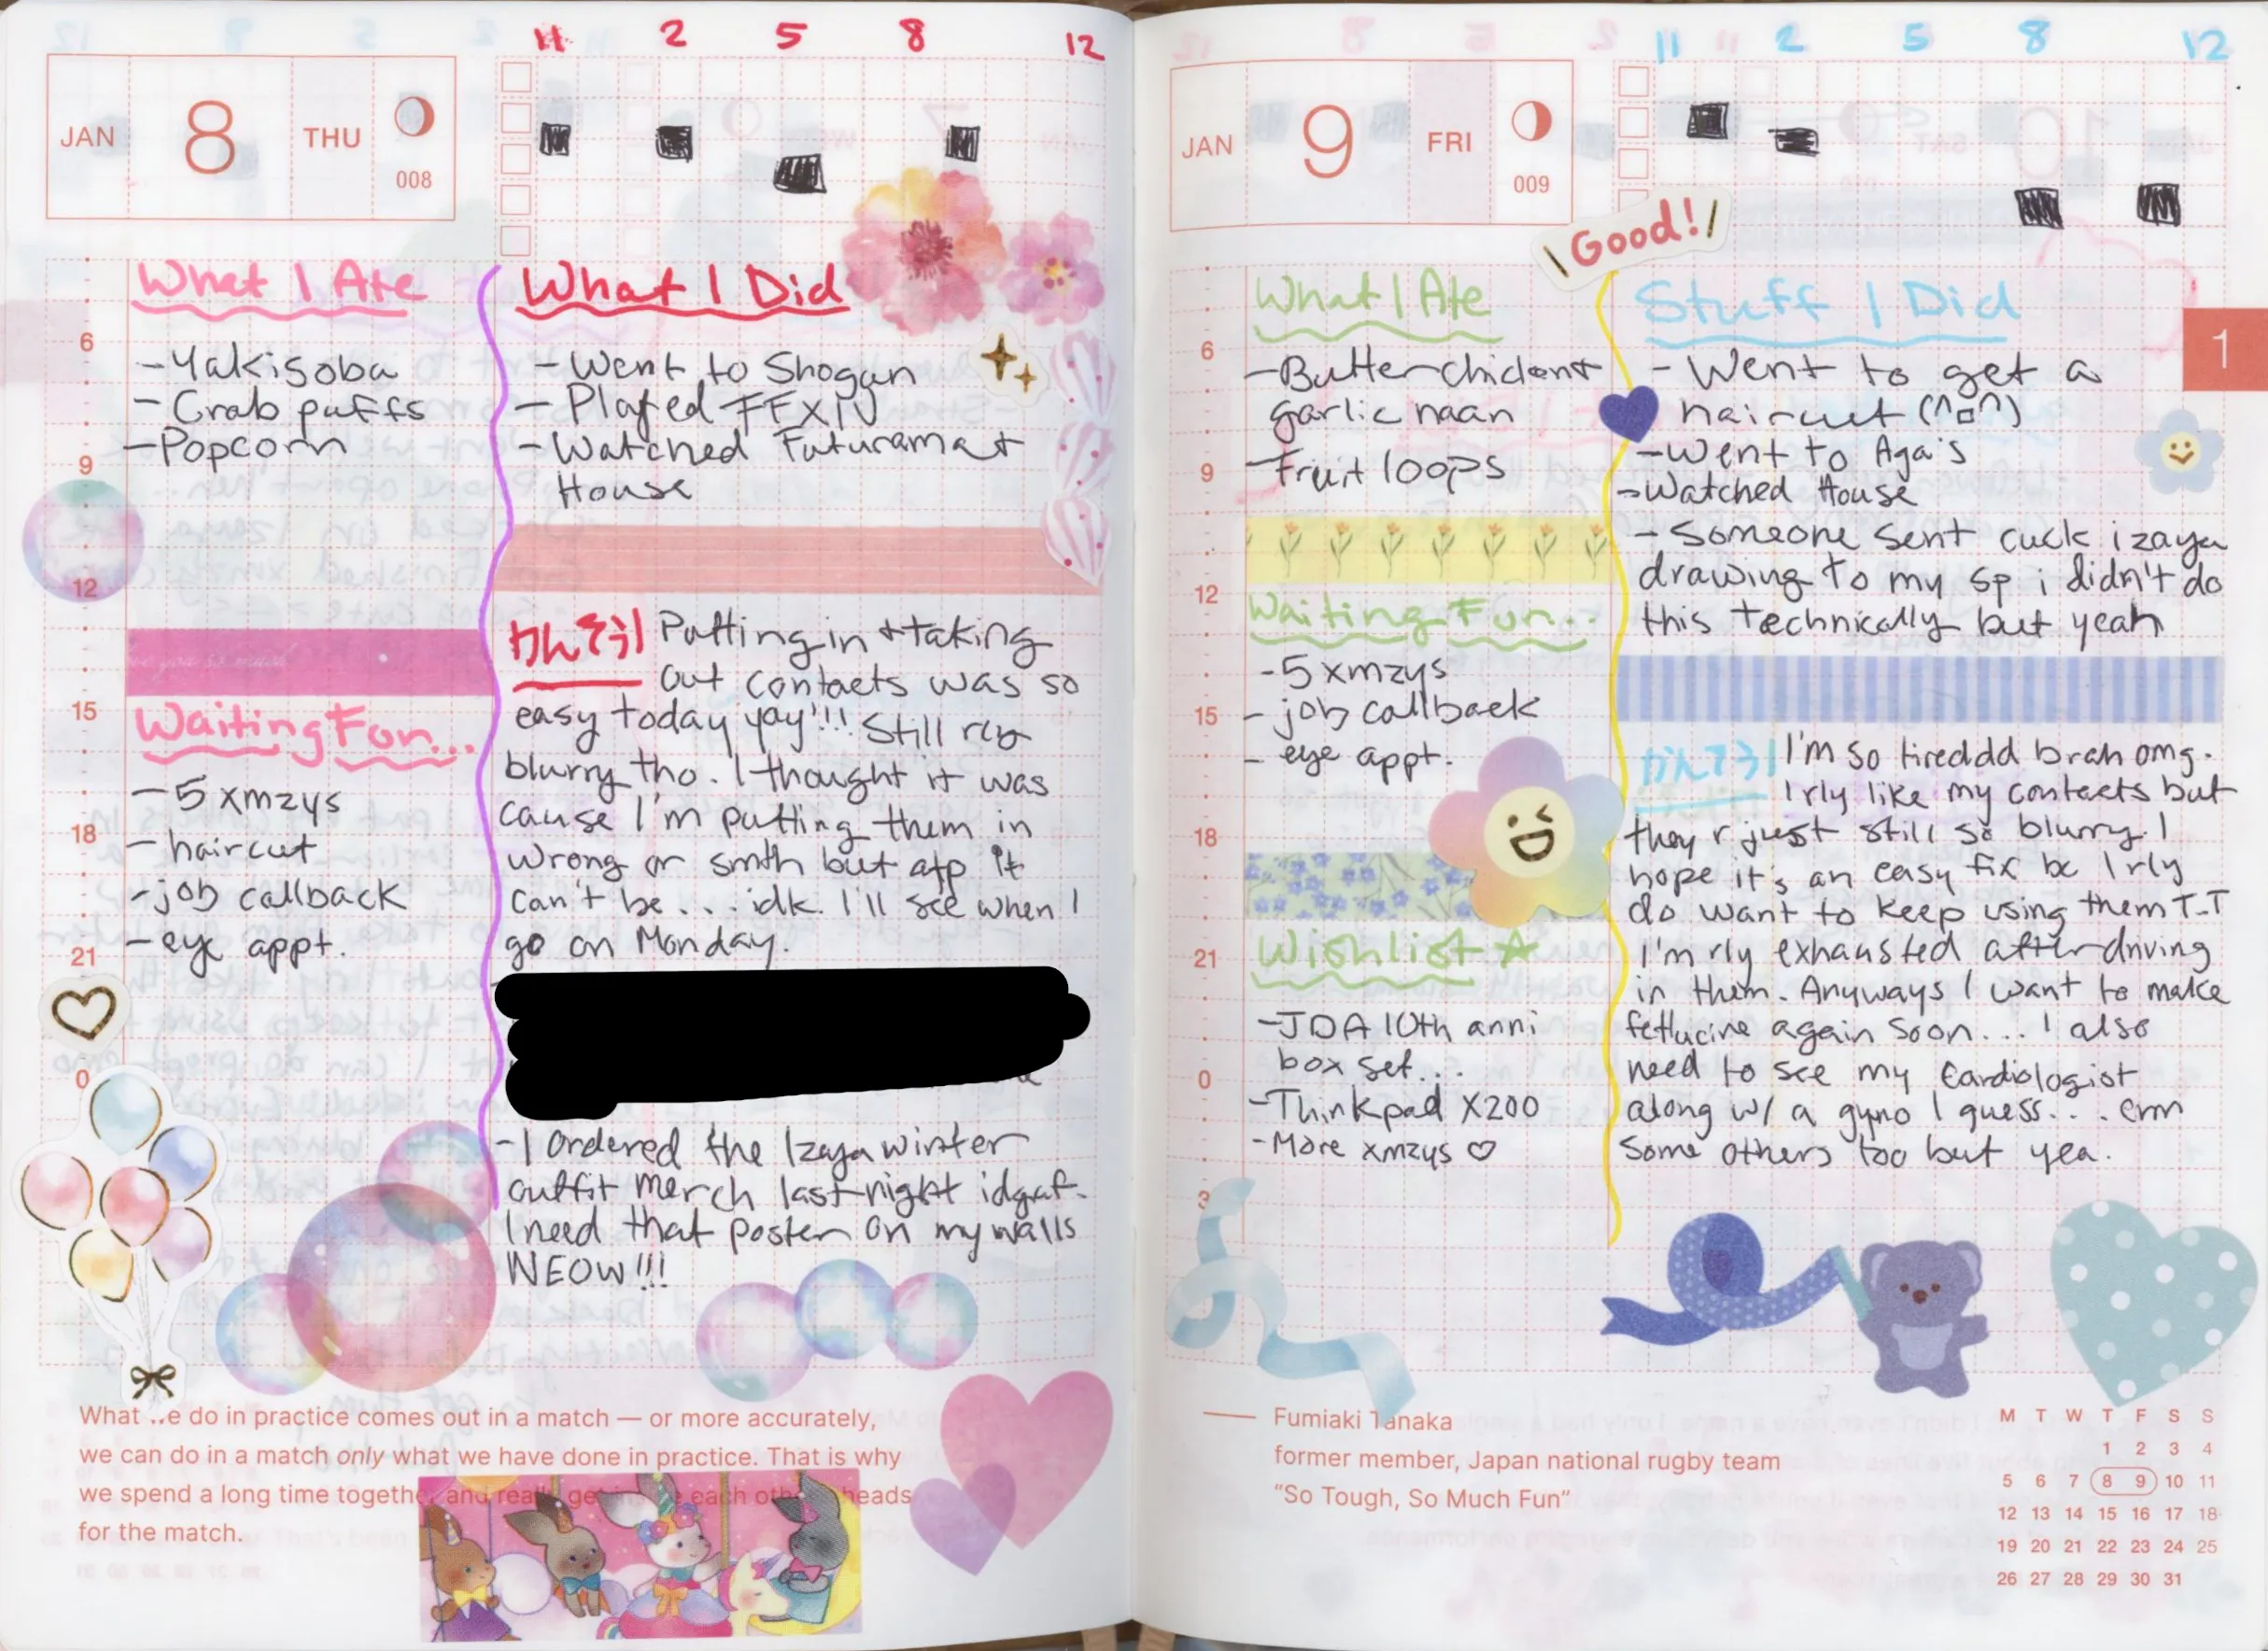 11 2 5 8 12
JAN 8 THU 008
What I Ate
- Yakisoba
- Crab puffs
- Popcorn
Waiting For...
- 5 xmzys
- haircut
- job callback
- eye appt.
What I Did
- Went to Shogun
- Played FFXIV
- Watched Futurama +
House
かんそう! Putting in + taking
out contacts was so
easy today yay!!! Still rly
blurry tho. I thought it was
cause I'm putting them in
wrong or smth but atp it
can't be... idk. I'll see when I
go on Monday.
- I ordered the Izaya winter
outfit merch last night idgaf.
I need that poster on my walls
NEOW!!!
6
9
12
15
18
21
0
What we do in practice comes out in a match — or more accurately,
we can do in a match only what we have done in practice. That is why
we spend a long time together and really get inside each other heads
for the match.
11 2 5 8 12
JAN 9 FRI 009
Good!
1
What I Ate
- Butter chicken +
garlic naan
- Fruit loops
Waiting For...
- 5 xmzys
- job callback
- eye appt.
Wishlist ☆
- JDA 10th anni
box set...
- Thinkpad X200
- More xmzys ♡
Stuff I Did
- Went to get a
haircut (^o^)
- Went to Aga's
- Watched House
- Someone sent cuck izaya
drawing to my sp i didn't do
this technically but yeah
かんそう! I'm so tireddd brah omg.
I rly like my contacts but
they r just still so blurry. I
hope it's an easy fix bc I rly
do want to keep using them T-T
I'm rly exhausted after driving
in them. Anyways I want to make
fettucine again soon.... I also
need to see my cardiologist
along w/ a gyno I guess... erm
some others too but yea.
6
9
12
15
18
21
0
3
Fumiaki Tanaka
former member, Japan national rugby team
“So Tough, So Much Fun”
M T W T F S S
1 2 3 4
5 6 7 8 9 10 11
12 13 14 15 16 17 18
19 20 21 22 23 24 25
26 27 28 29 30 31